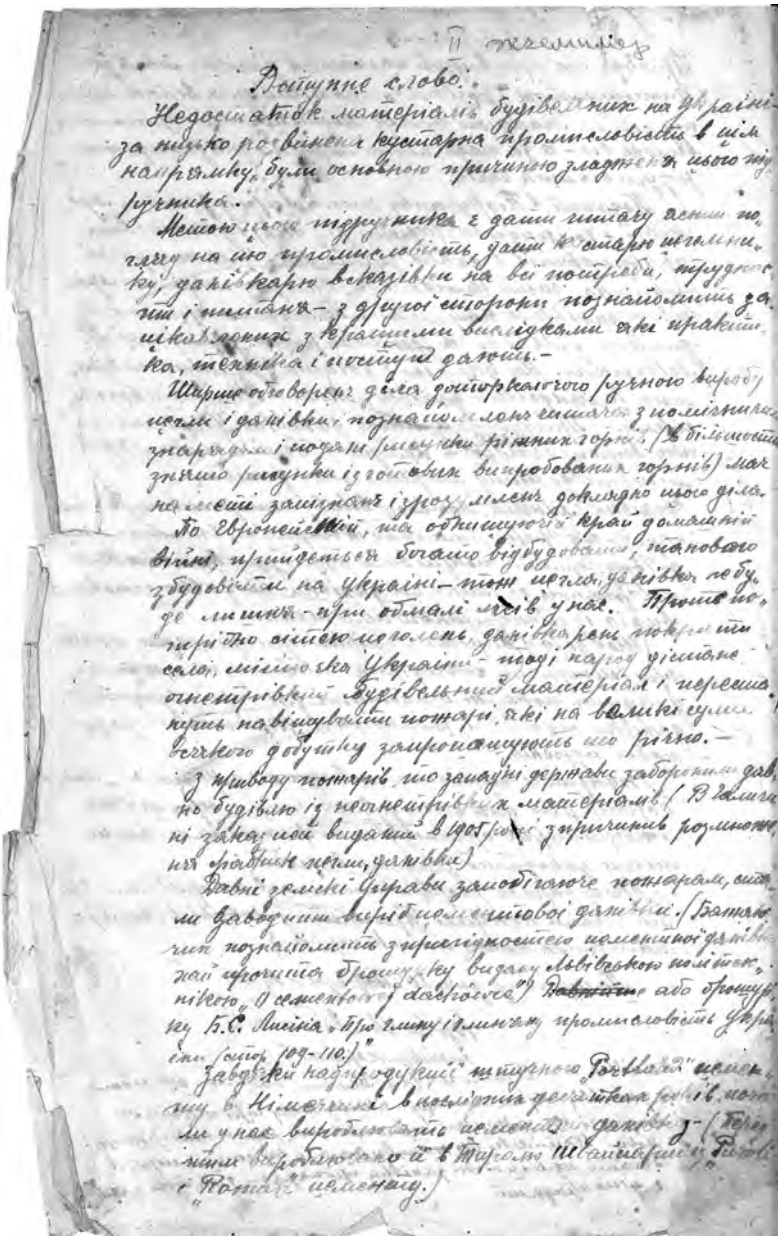 II екземпляр
Вступне слово.
Недостаток матеріалів будівельних на Україні
за низько розвинена кустарна промисловість в цім
напрямку, були основною причиною зладженя цього під
ручника.
Метою цього підручника є дати читачу ясний по„
гляд на цю промисловість, дати кустарю цегельни„
ку, дахівкарю вказівки на всі потреби, труднос
ти і питаня – з другої сторони познайомить за
ціквлених з кращими вислідками які практи
ка, техніка і поступ дають.–
Ширше обговорень діла доторкаючого ручного виробу
цегли і дахівки, познайомлень читача з помічними
знарядям і подані рисунки ріжних горнів (в більшости
знято рисунки із готових випробованих горнів) має
на меті запізнань і зрозумлень докладно цього діла.
По Европейській, та обнищуючій край домашній
війні, прийдеться богато відбудовати, та нового
збудовати на Україні – тож цегла, дахівка не бу„
де лишня – при обмалі лісів у нас. Проте по„
трібно сітею цеголень, дахівкарень покрити
села, містечка України – тоді народ дістане
огнетрівкий будівельний матеріал і переста„
нуть навіщувати пожарі, які на великі суми
всякого добутку запропащують що річно.–
З приводу пожарів, то западні держави заборонили дав
но будівлю із неогнетрівких матеріалів (В Галичи
ні закон цей виданий в 1905 році з причинив розмноже
ня фабрик цегли, дахівки)
Давні земскі Управи запобігаюче пожарам, ста
ли заводити виріб цементової дахівки. (Бажаю
чих познайомить з пригідностею цементної дахівки
хай прочита брошурку видану Львівською політех„
нікою „O cementowej dachówce") або брошур
ку Б.С. Лисіна „Про глину і глиняну промисловість Укра
їни (стор 109–110.)"
Завдяки надпродукції штучного „Portland" цемен„
ту в Німеччині в послідних десятках років, поча
ли у нас вироблювать цементну дахівку – (
вироблювано її в Тиролю Швайцарії
і „Roman" цементу.)